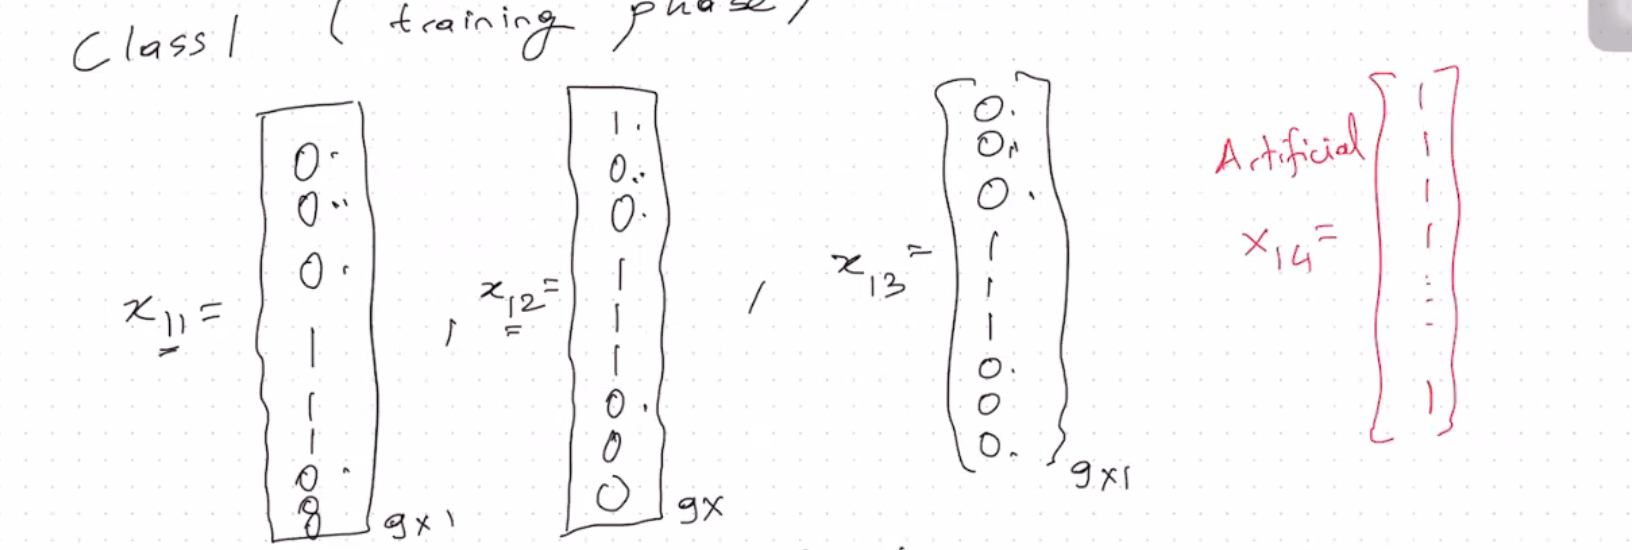 Class1 ( training phase)
x11 = [0 0 0 1 1 1 0 0 0] 9x1 , x12 = [1 0 0 1 1 1 0 0 0] 9x , x13 = [0 0 0 1 1 1 0 0 0] 9x1
Artificial
x14 = [1 1 1 1 ⋮ 1]